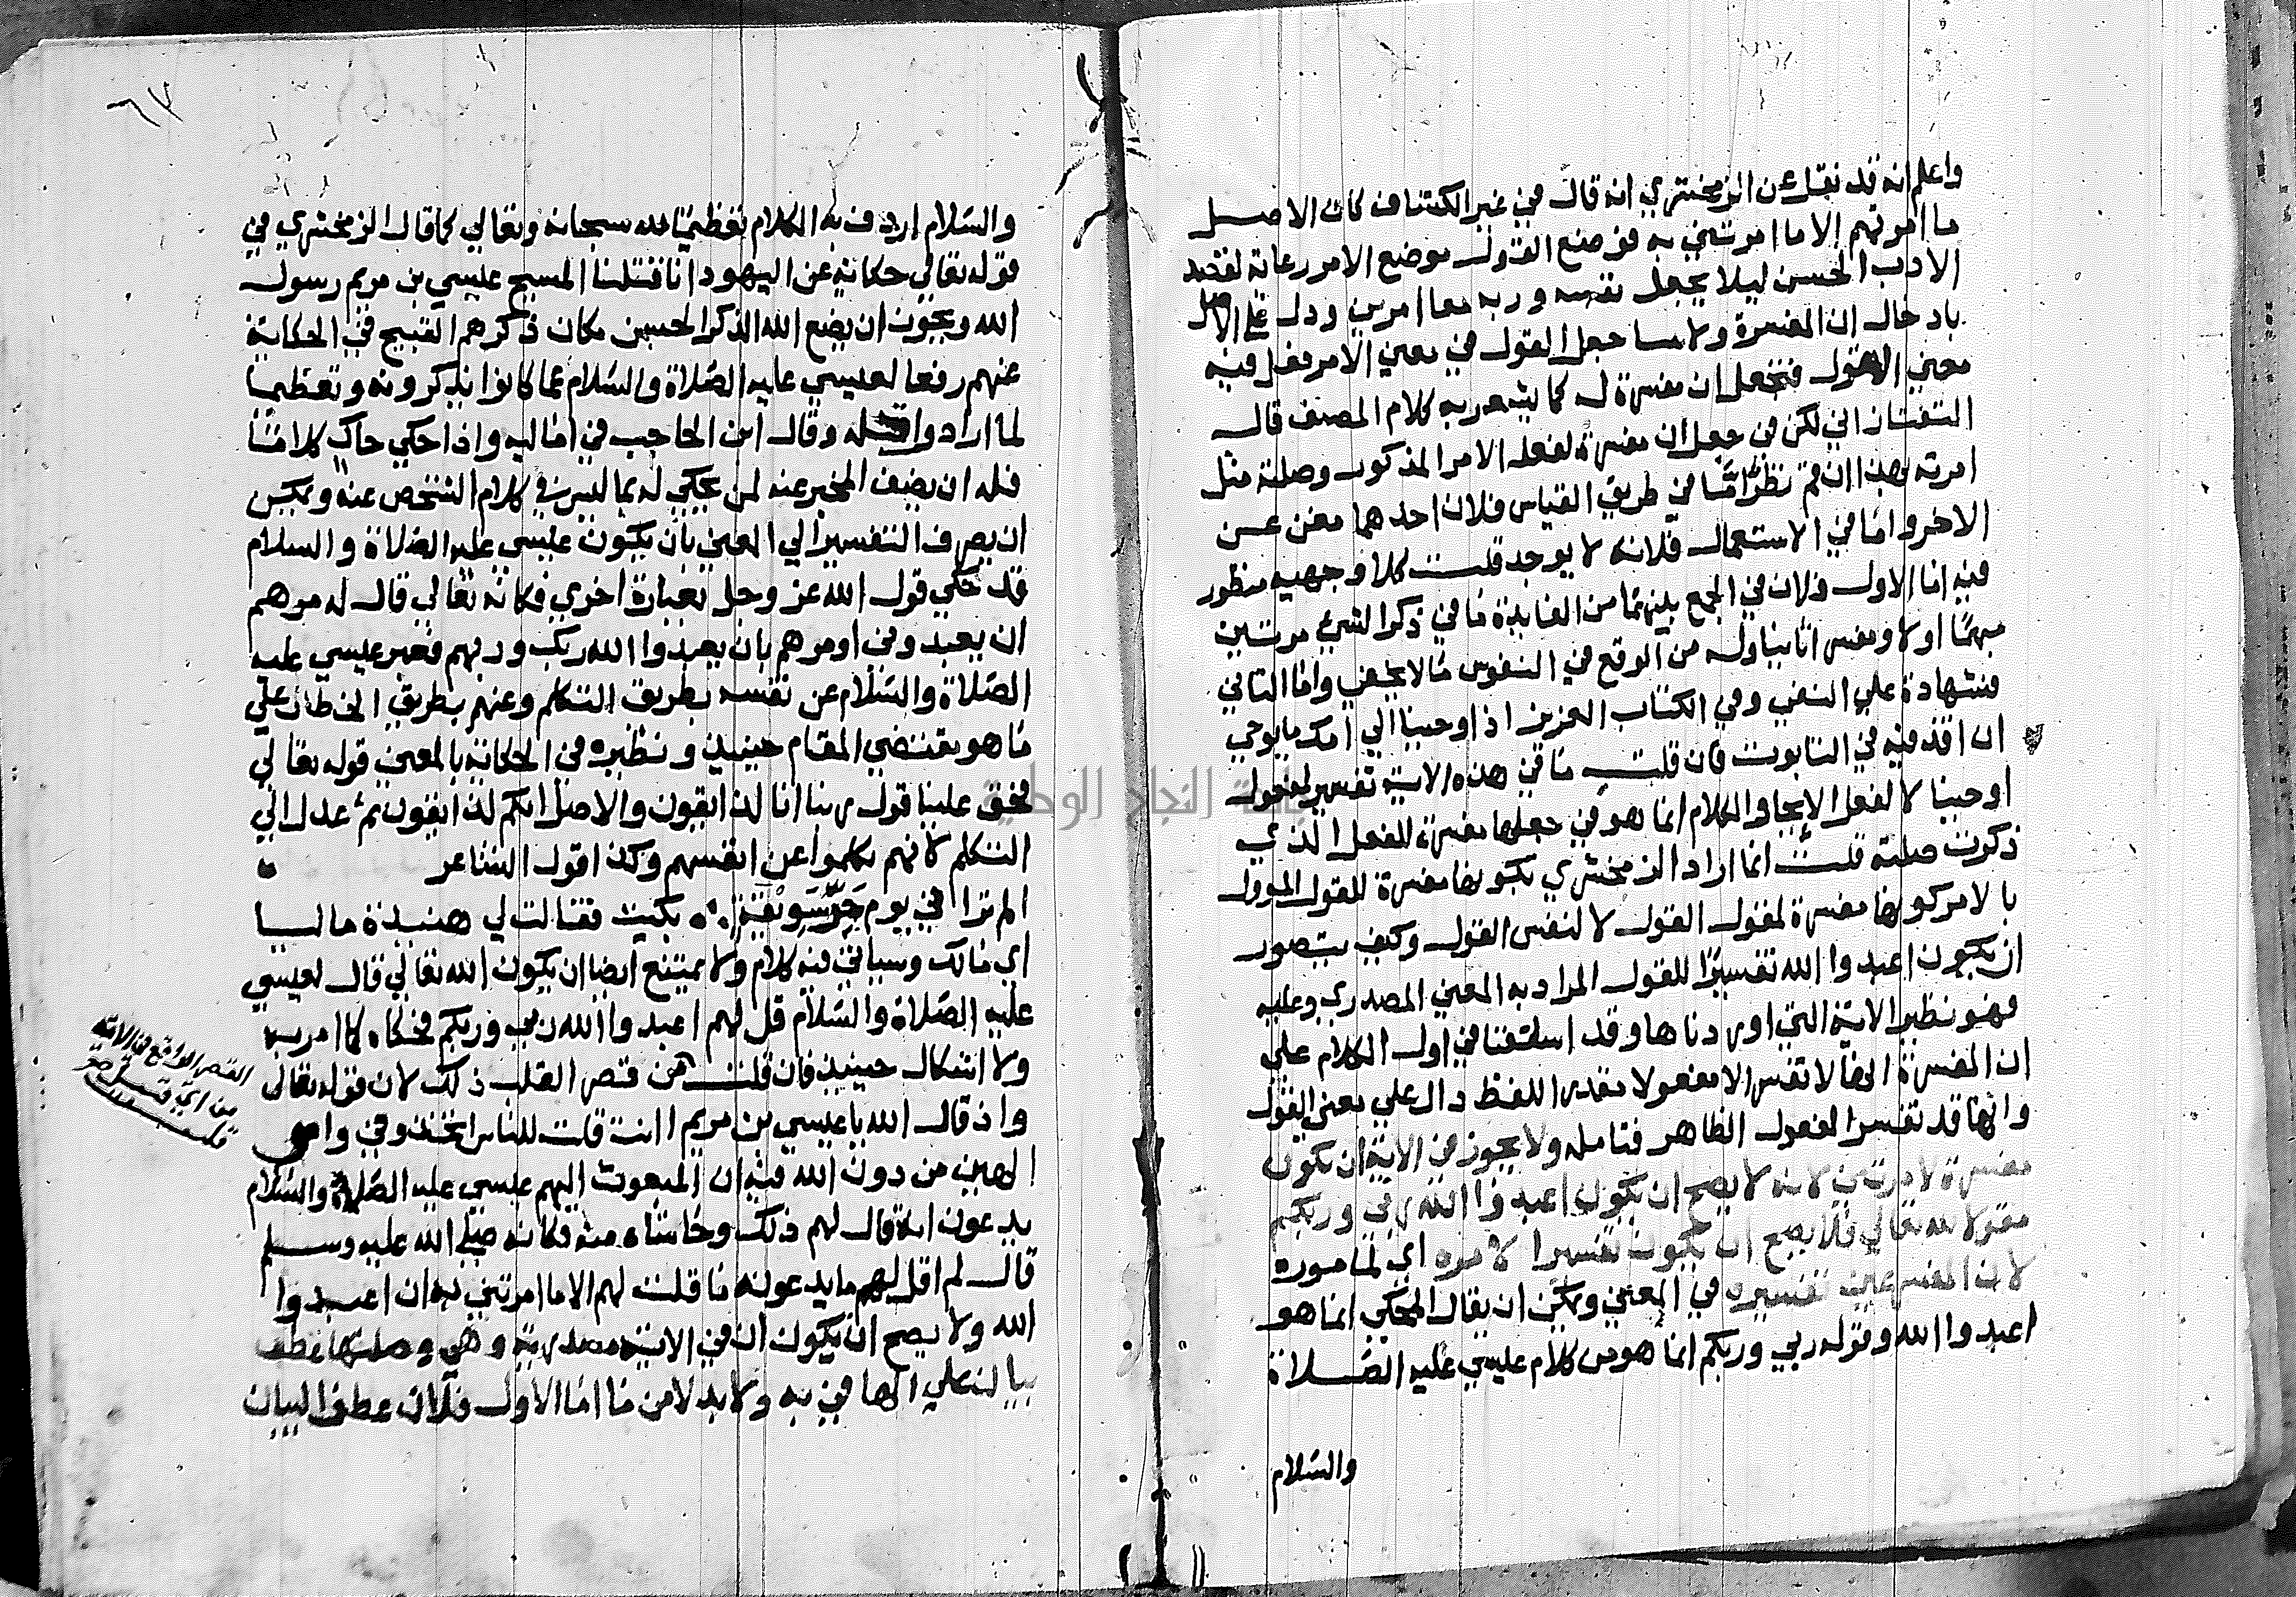 واعلم انه قد نقل عن الزمخشري انه قال في غير الكشاف كان الاصل
ما امرتهم الا ما امرتني به فوضع القول موضع الامر رعاية لقضية
الادب الحسن ليلا يجعل نفسه وربه معا امرين ودل على الاصل
بادخال ان المفسرة ولا مساحعل القول في معني الامر فعل فيه
معني القول فتجعل ان مفسرة له كما يشعر به كلام المصنف قال
التفتازاني لكن في جعل ان مفسرة لفعل الامر المذكور وصلته مثل
امرته بهذا ان قم نظر اما في طريق القياس فلان احدهما مغن عن
الاخر واما في الاستعمال فلانه لا يوجد قلت كلا وجهيه منظور
فيه اما الاول فلان في الجمع بينهما من الفايدة ما في ذكر الشي مرتين
مبهما اولا ومفسرا ثانيا وله من الوقع في النفوس ما لا يخفي واما الثاني
فشهادة علي النفي وفي الكتاب العزيز اذ اوحينا الي امك ما يوحي
ان اقذفيه في التابوت فان قلت ما في هذه الاية تفسير لمفعول
اوحينا لا لفعل الايحا والكلام انما هو في جعلها مفسرة للفعل الذي
ذكرت صلته قلت انما اراد الزمخشري بكونها مفسرة للقول الموول
بالامر كونها مفسرة لمفعول القول لا لنفس القول وكيف يتصور
ان يكون اعبدوا الله تفسيرا للقول المراد به المعني المصدري وعليه
فهو نظير الاية التي اوردناها وقد اسلفنا في اول الكلام علي
ان المفسرة انها لا تفسر الا مفعولا مقدر اللفظ دال علي معني القول
وانها قد تفسر المفعول الظاهر فتامله ولا يجوز في الاية ان تكون
مفسرة لامرتني لانه لا يصح ان يكون اعبدوا الله ربي وربكم
مقولا لله تعالي فلا يصح ان يكون تفسيرا لامره اي لماموره
لان المفسر عين تفسيره في المعني ويمكن ان يقال المحكي انما هو
اعبدوا الله وقوله ربي وربكم انما هو من كلام عليسي عليه الصلاة
والسلام
والسلام اردف به الكلام تعظيما لله سبحانه وتعالي كما قال الزمخشري في
قوله تعالي حكاية عن اليهود انا قتلنا المسيح عيسي بن مريم رسول
الله ويجوز ان يضع الله الذكر الحسن مكان ذكرهم القبيح في الحكاية
عنهم رفعا لعيسي عليه الصلاة والسلام عما كانوا يذكرونه وتعظيما
لما ارادوا بمثله وقال ابن الحاجب في اماليه واذا حكي حاك كلاما
فله ان يصف المخبر عنه لمن يحكي له بما ليس في كلام الشخص عنه ويمكن
ان يصرف التفسير الي المعني بان يكون عيسي عليه الصلاة والسلام
قد حكي قول الله عز وجل بعبارة اخري فكانه تعالي قال له مرهم
ان يعبدوني او مرهم بان يعبدوا الله ربك وربهم فعبر عيسي عليه
الصلاة والسلام عن نفسه بطريق التكلم وعنهم بطريق الخطاب علي
ما هو يقتضي المقام حينيذ ونظيره في الحكاية بالمعني قوله تعالي
فحق علينا قول ربنا انا لذايقون والاصل انكم لذايقون ثم عدل الي
التكلم لانهم تكلموا عن انفسهم وكذا قول الشاعر
الم ترا في يوم جو سويقة بكيت فقالت لي هنيدة ماليا
اي مالك وسياتي فيه كلام ولا يمتنع ايضا ان يكون الله تعالي قال لعيسي
عليه الصلاة والسلام قل لهم اعبدوا الله ربي وربكم فحكاه كما امر به
ولا اشكال حينيذ فان قلت من قصر القلب ذلك لان قوله تعالي
واذ قال الله يا عيسي بن مريم اانت قلت للناس اتخذوني وامي
الهين من دون الله فيه ان المبعوث اليهم عيسي عليه الصلاة والسلام
يدعون انه قال لهم ذلك وحاشاه منه فكانه صلي الله عليه وسلم
قال لم اقل لهم ما يدعونه ما قلت لهم الا ما امرتني به ان اعبدوا
الله ولا يصح ان يكون ان في الاية مصدرية وهي وصلتها عطف
بيان علي الها في به ولا بدلا من ما اما الاول فلان عطف البيان
القصر الواقع في الاية
من اي قصر
قلت